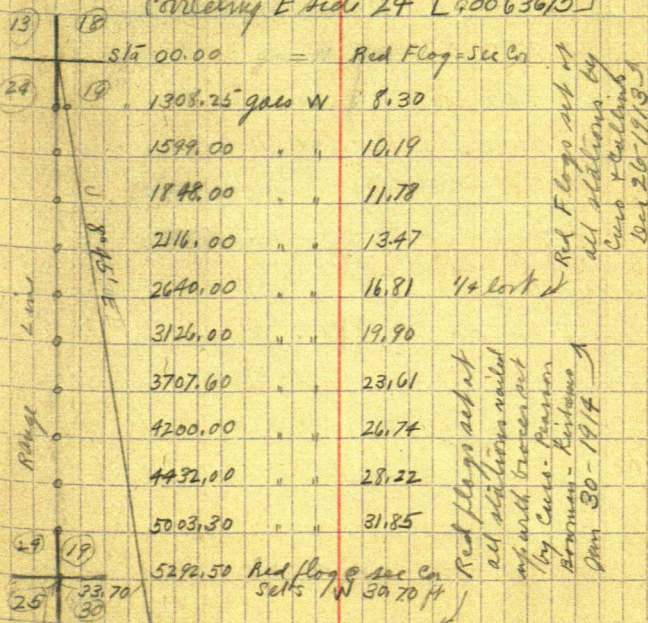 E side 24
13 18
sta 00.00 = Red Flag = Sec Cor
24 19
1308.25 goes W 8.30
1599.00 " " 10.19
1848.00 " " 11.78
2116.00 " " 13.47
2640.00 " " 16.81 1/4 lost
3126.00 " " 19.90
3707.60 " " 23.61
4200.00 " " 26.74
4432.00 " " 28.22
5003.30 " " 31.85
5292.50 Red flag @ sec Cor
Sets W 30.70 ft
24 19
25 30
33.70
Range Line
Red Flags set at
all stations by
Curo & Collins
Dec 26-1913
Red flags set at
all stations nailed
up with braces set
by Curo - Pearson
Bowman -
Jan 30-1914